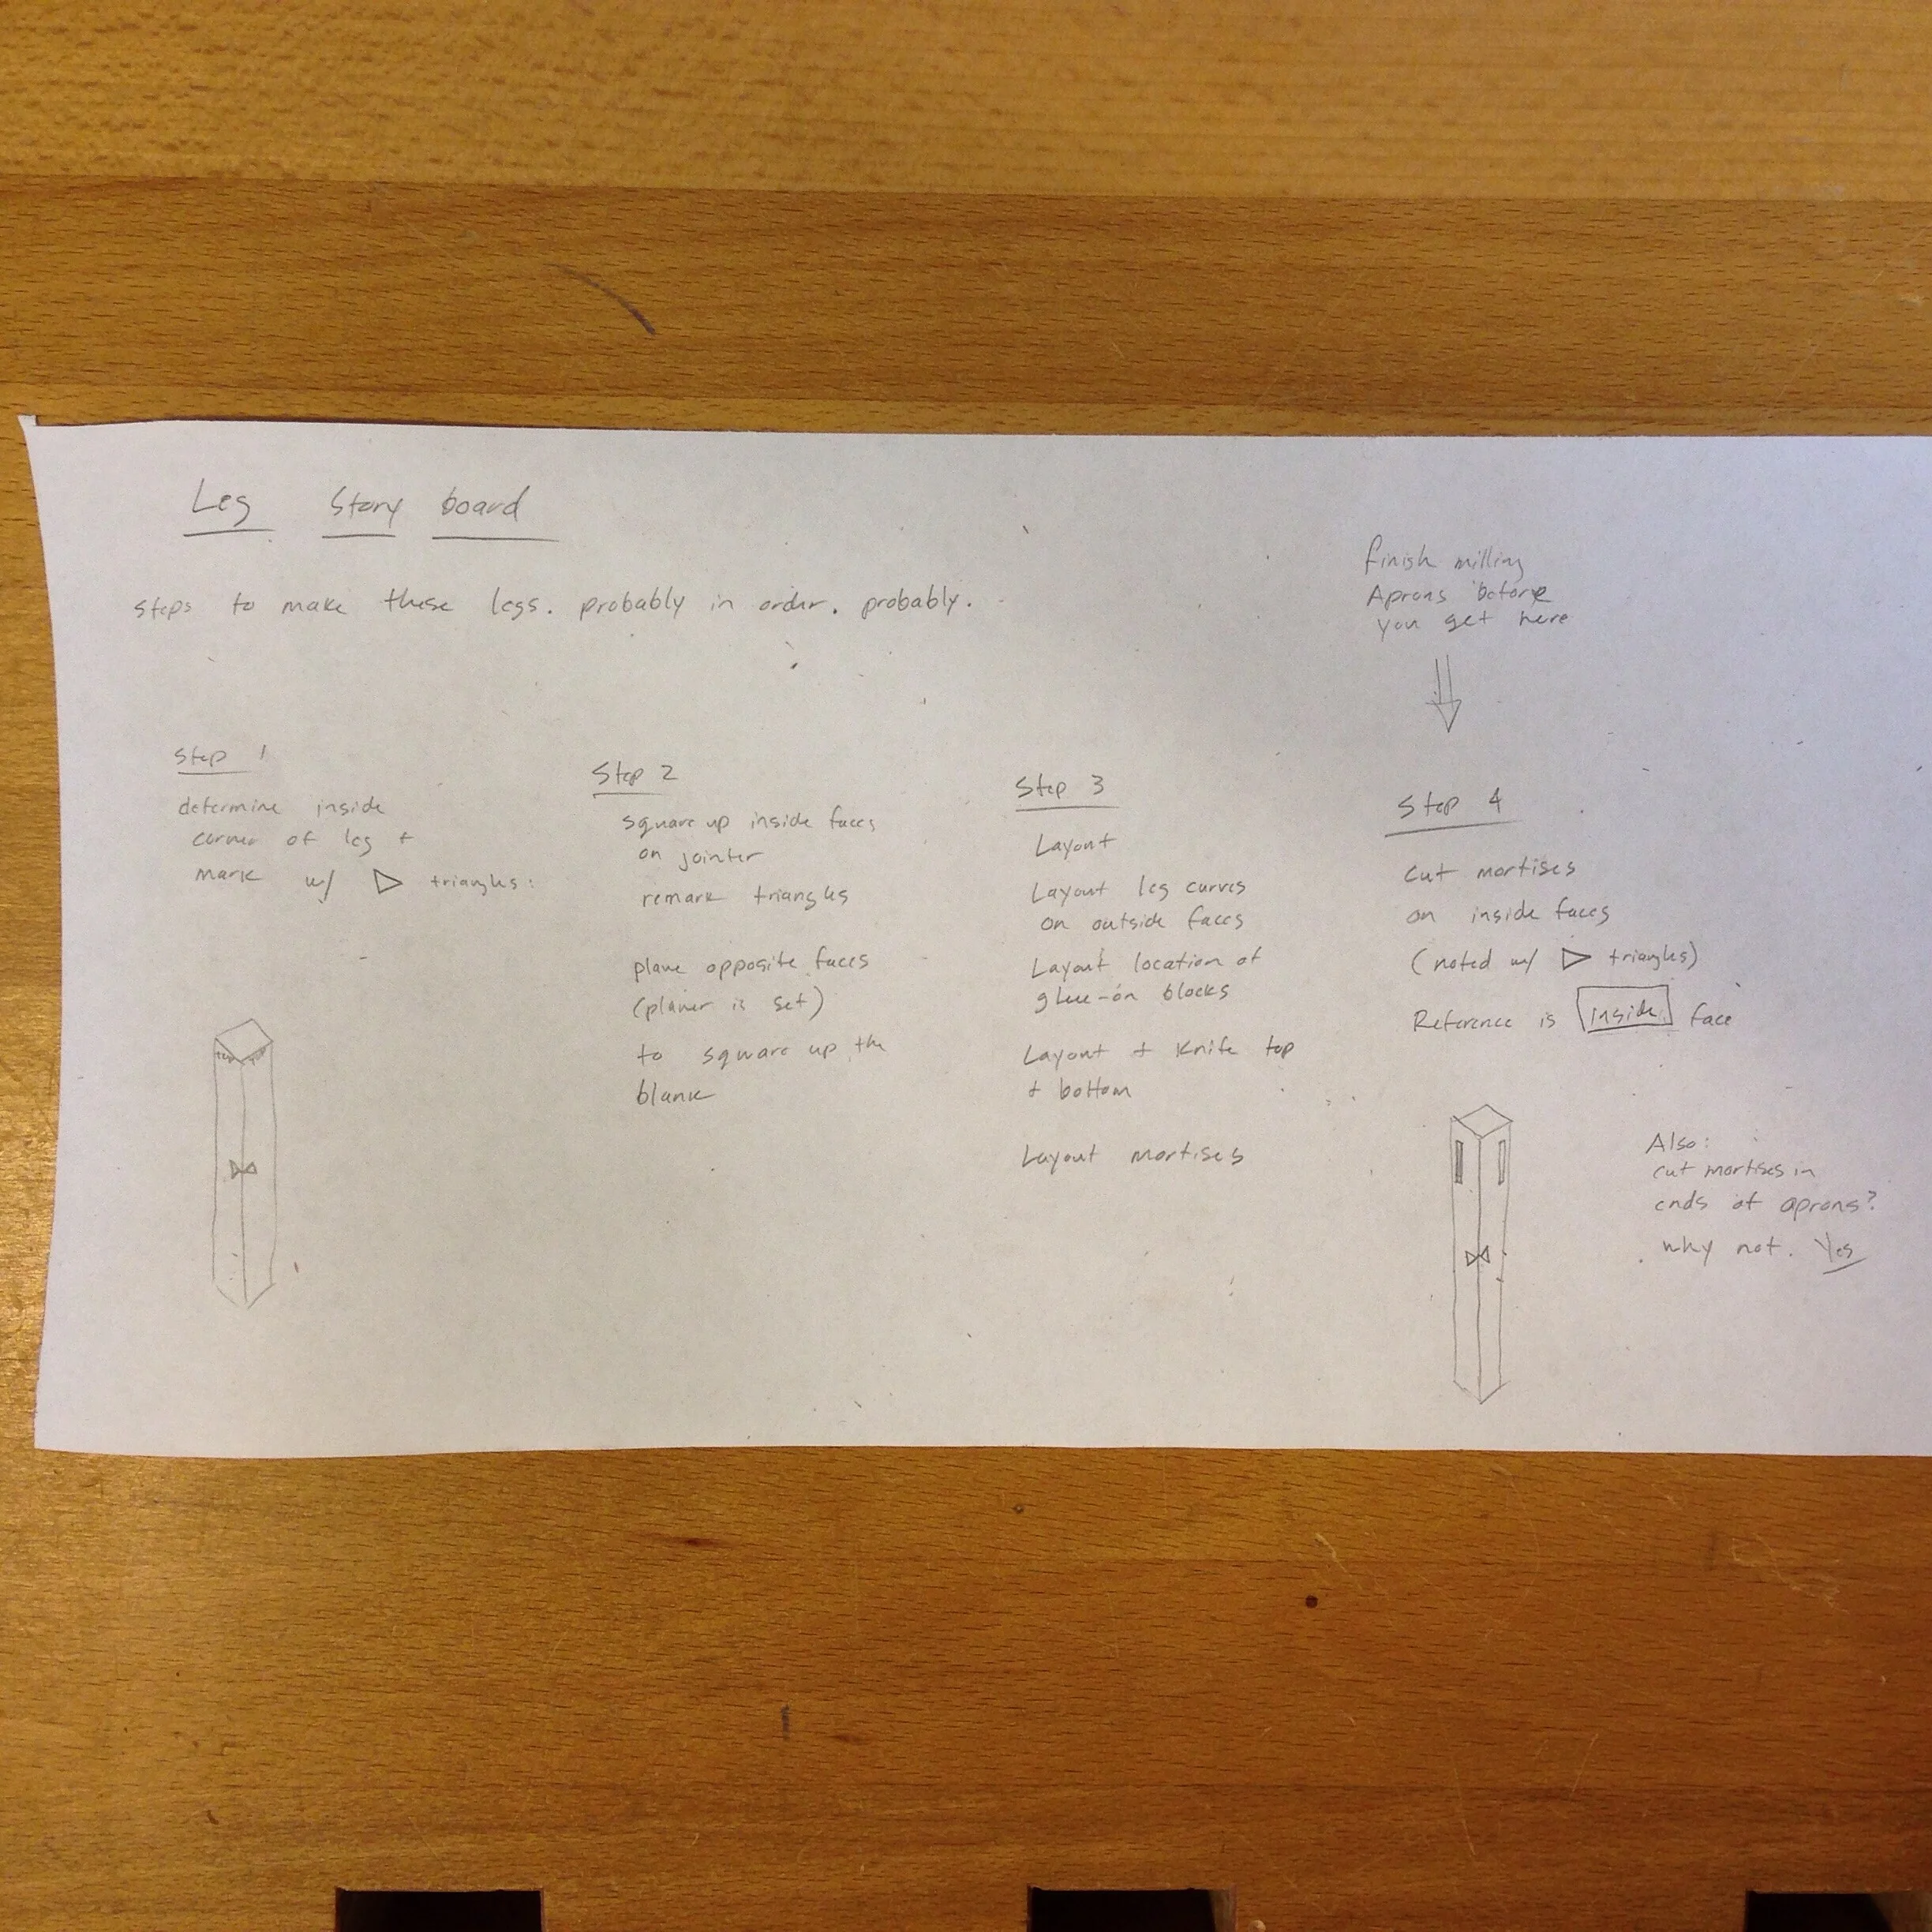 Leg Story board
steps to make these legs. probably in order. probably.
finish milling
Aprons before
you get here
Step 1
determine inside
corner of leg +
mark w/ ▷ triangles:
Step 2
square up inside faces
on jointer
remark triangles
plane opposite faces
(planer is set)
to square up the
blank
Step 3
Layout
Layout leg curves
on outside faces
Layout location of
glue-on blocks
Layout + Knife top
+ bottom
Layout mortises
Step 4
cut mortises
on inside faces
(noted w/ ▷ triangles)
Reference is inside face
Also:
cut mortises in
ends of aprons?
why not. Yes